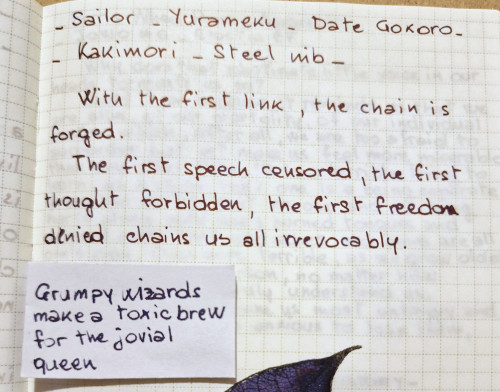 - Sailor - Yurameku - Date Gokoro -
- Kakimori - Steel nib -
With the first link, the chain is
forged.
The first speech censored, the first
thought forbidden, the first freedom
denied chains us all irrevocably.
Grumpy wizards
make a toxic brew
for the jovial
queen